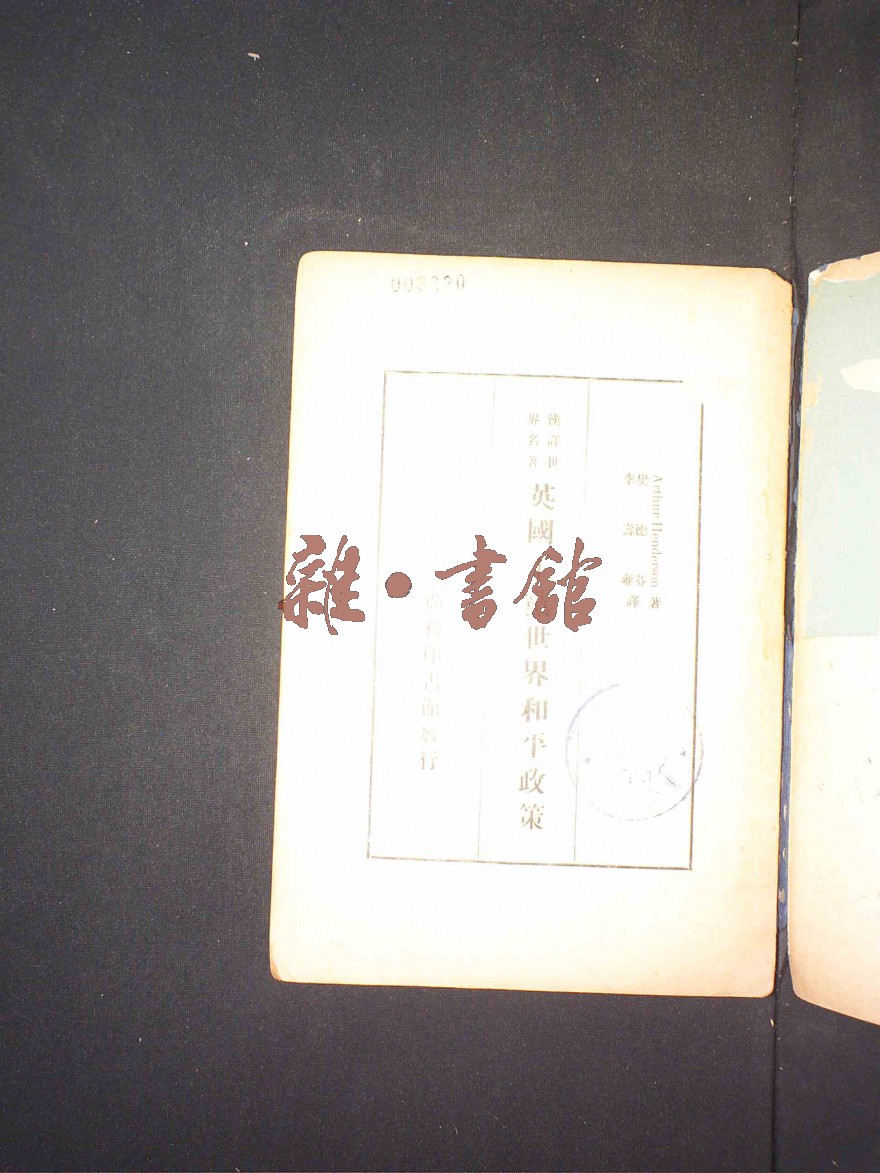 漢譯世
界名著
Arthur Henderson 著
德芬
李壽雍譯
英國
世界和平政策
商務印書館發行
雜·書館